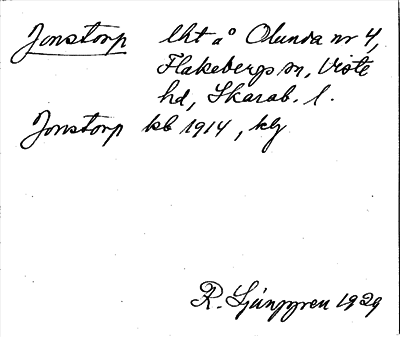 Jonstorp lht å Olunda nr 4,
Flakebergs sn, Viste
hd, Skarab. l.
Jonstorp kb 1914, klj
R. Ljunggren 1929